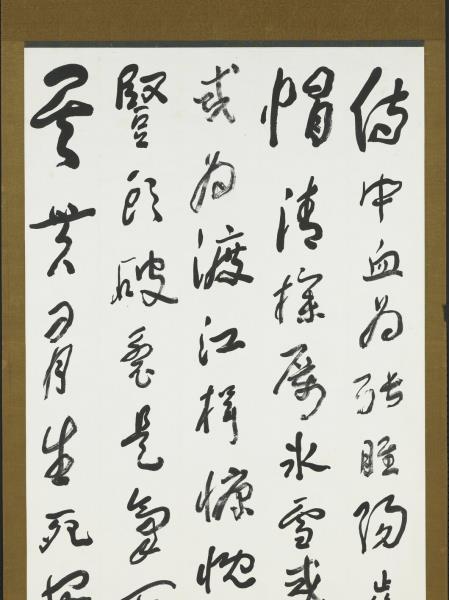 侍中血為張睢陽
帽清操厲冰雪或
或為渡江楫慷慨
豎頭破裂是氣
其貫日月生死